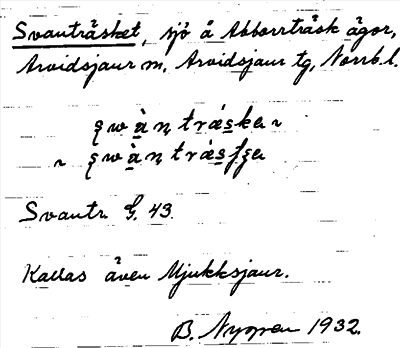 Svanträsket, sjö å Abborrträsk ägor,
Arvidsjaur sn, Arvidsjaur tg, Norrb. l.
Svantr. G. 43.
Kallas även Njukksjaur.
B. Nygren 1932.